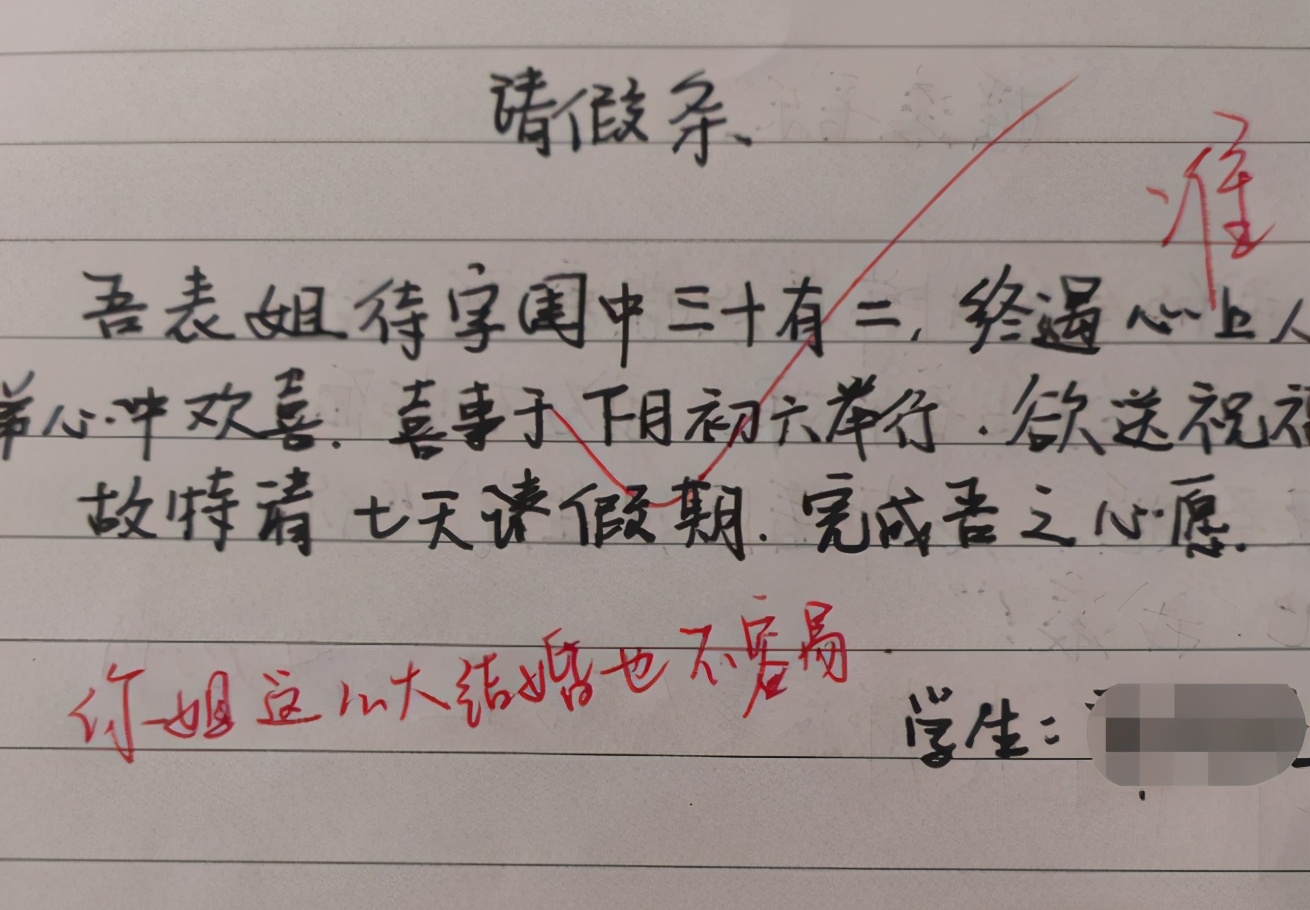 请假条
准
吾表姐待字闺中三十有二,终遇心上人
弟心中欢喜.喜事于下月初六举行.欲送祝福
故特请七天请假期.完成吾之心愿.
你姐这么大结婚也不容易
学生: